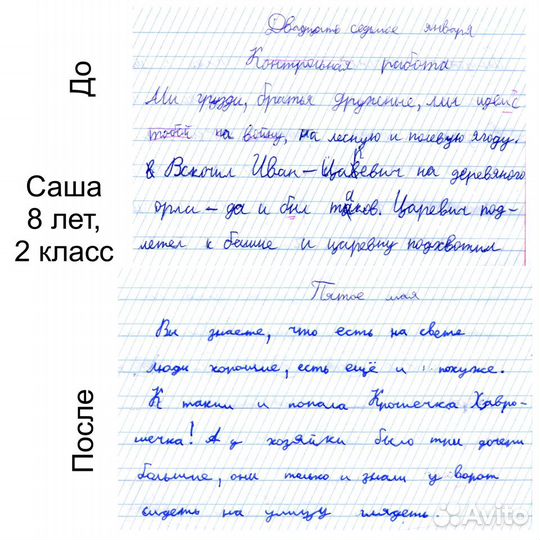 До
Саша
8 лет,
2 класс
Двадцать седьмое января
Контрольная работа
Ми грузди, братья дружные, мы идём с
тобой на войну, на лесную и полевую ягоду.
Вскочил Иван-Царевич на деревяного
орла - да и был таков. Царевич под-
летел к башне и царевну подхватил
После
Пятое мая
Вы знаете, что есть на свете
люди хорошие, есть ещё и похуже.
К таким и попала Крошечка Хавро-
шечка! А у хозяйки было три дочери
большие, они только и знали у ворот
сидеть на улицу глядеть.
Avito